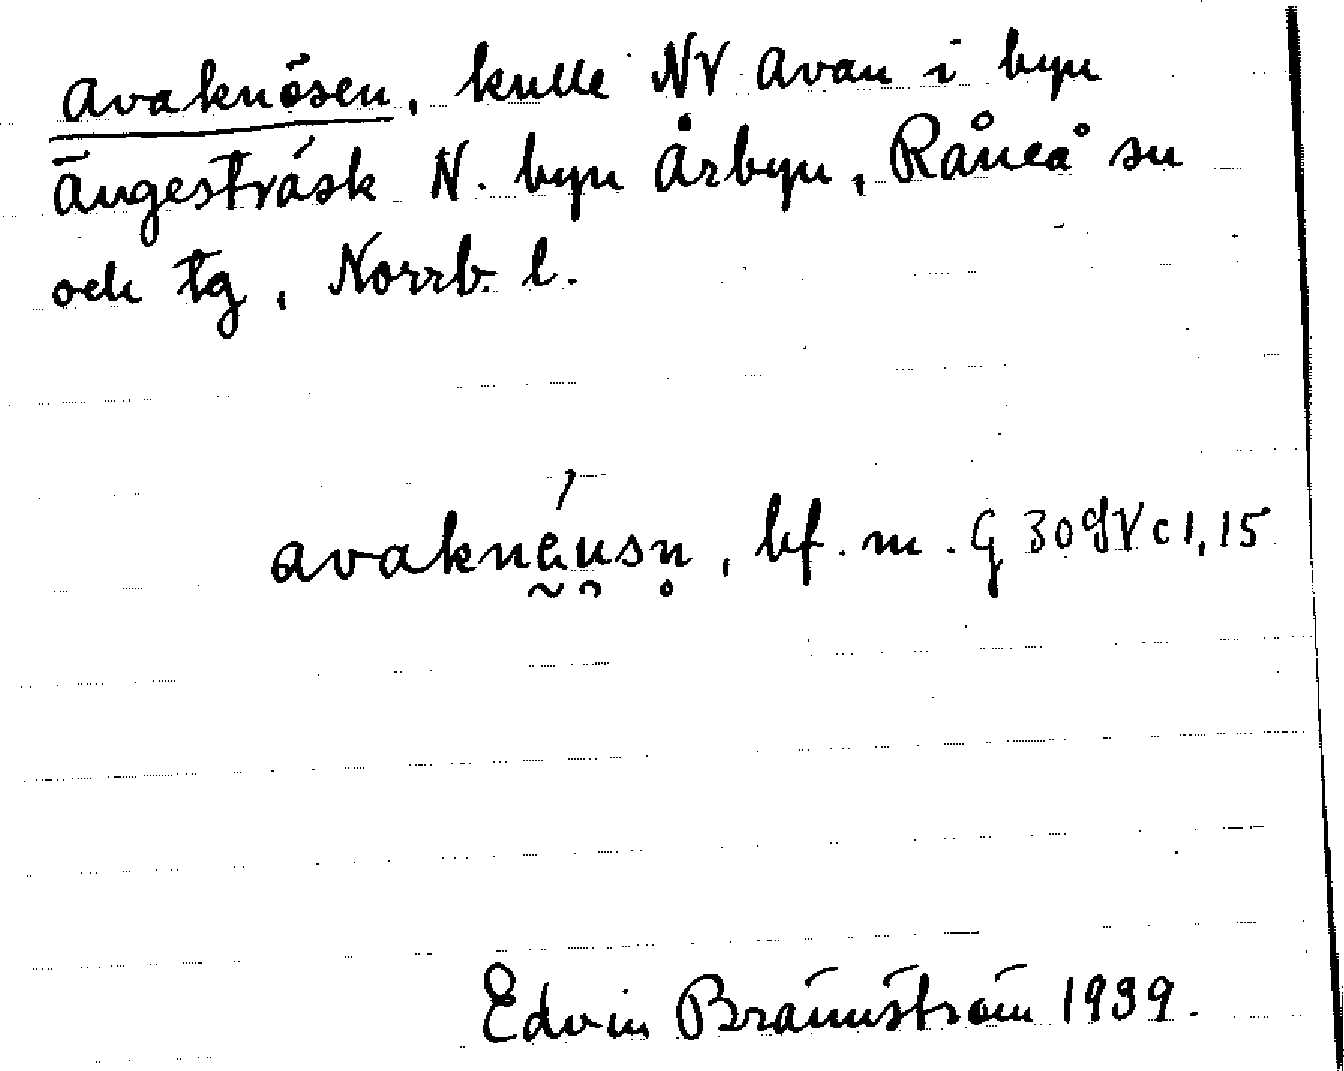 Avaknösen, kulle NV Avan i byn
Ängesträsk N. byn Årbyn, Råneå sn
och tg, Norrb. l.
avaknäusn̥, bf. m. G 309 V c 1, 15
Edvin Brännström 1939.